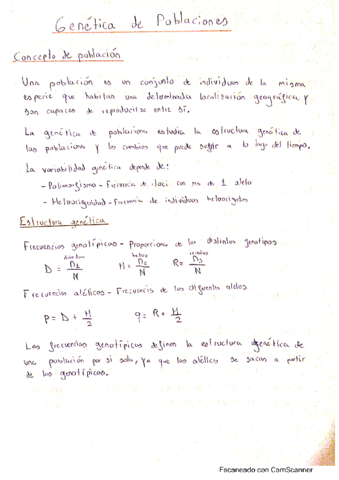 Genética de Poblaciones
Concepto de población
Una población es un conjunto de individuos de la misma
especie que habitan una determinada localización geográfica y
son capaces de reproducirse entre sí.
La genética de poblaciones estudia la estructura genética de
las poblaciones y los cambios que puede sufrir a lo largo del tiempo.
La variabilidad genética depende de:
- Polimorfismo - Frecuencia de loci con más de 1 alelo
- Heterocigosidad - Frecuencia de individuos heterocigotos
Estructura genética
Frecuencias genotípicas - Proporciones de los distintos genotipos
D = n1/N H = n2/N R = n3/N
Frecuencias alélicas - Frecuencia de los diferentes alelos
p = D + H/2 q = R + H/2
Las frecuencias genotípicas definen la estructura genética de
una población por sí sola, ya que las alélicas se sacan a partir
de las genotípicas.
Escaneado con CamScanner